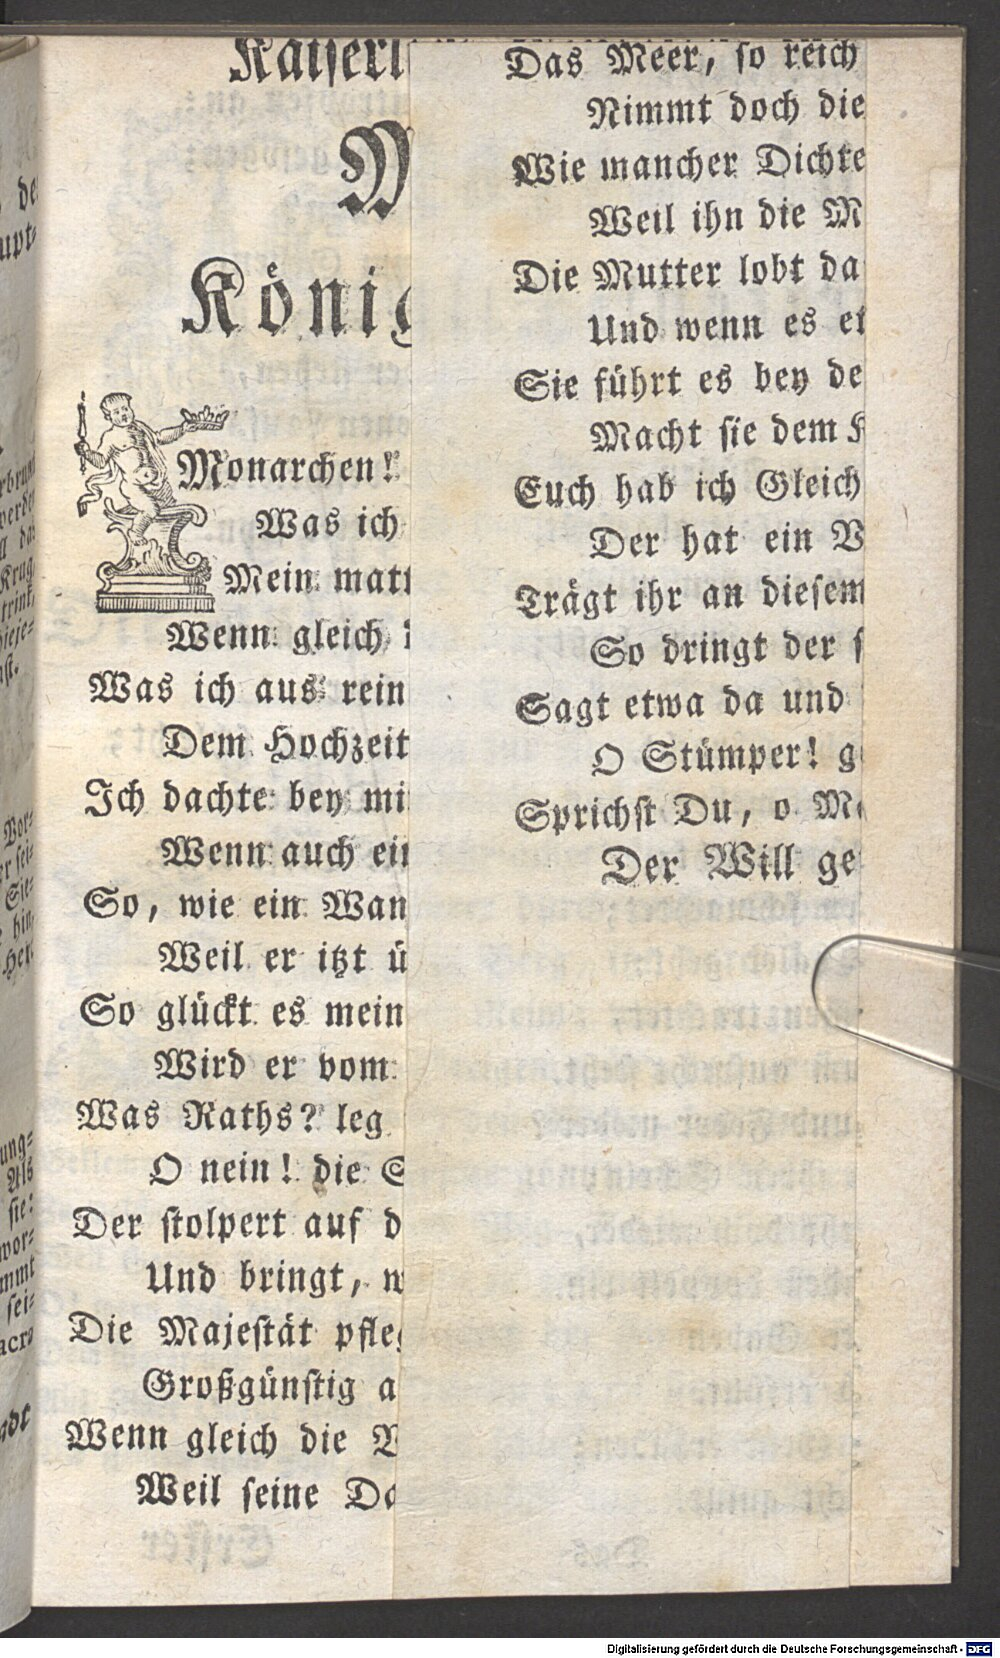 Kaiserl
M
König
Monarchen!
Was ich
Mein matt
Wenn gleich
Was ich aus rein
Dem Hochzeit
Ich dachte bey mi
Wenn auch ein
So, wie ein Wan
Weil er itzt ü
So glückt es mein
Wird er vom
Was Raths? leg
O nein! die S
Der stolpert auf d
Und bringt, w
Die Majestät pfleg
Großgünstig a
Wenn gleich die W
Weil seine Da
Das Meer, so reich
Nimmt doch die
Wie mancher Dichte
Weil ihn die M
Die Mutter lobt da
Und wenn es et
Sie führt es bey de
Macht sie dem K
Euch hab ich Gleich
Der hat ein V
Trägt ihr an diesem
So dringt der s
Sagt etwa da und
O Stümper! g
Sprichst Du, o Mo
Der Will ge
de
upt-
Krug
trink,
Vor-
er sei-
Sie-
hin,
Her
ung-
Als
sie:
wor-
mmt
sei-
acro
Digitalisierung gefördert durch die Deutsche Forschungsgemeinschaft - DFG